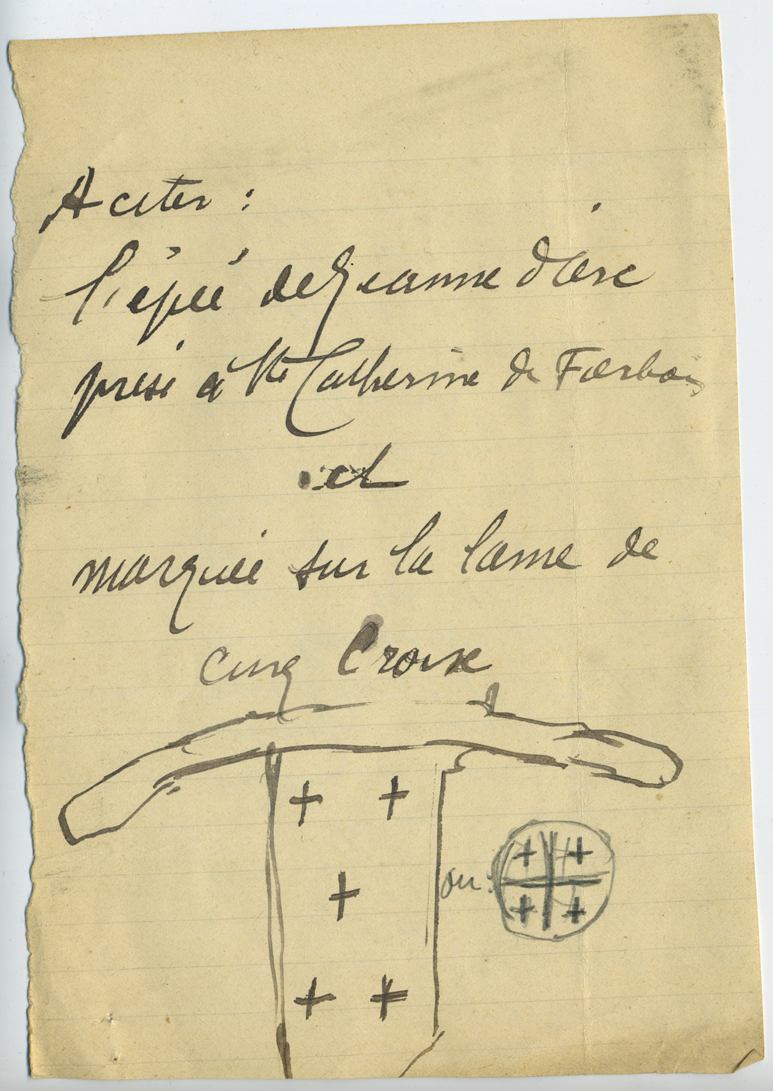 A citer :
l'épée de Jeanne d'Arc
prise à Ste Catherine de Fierbois
et
marquée sur la lame de
cinq Croix
ou :